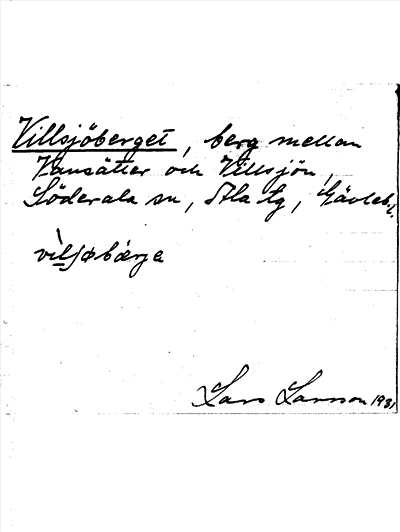 Villsjöberget, berg mellan
Vansätter och Villsjön,
Söderala sn, Ala tg, Gävleb. l.
vìlʃøbærje
Lars Larsson 1931